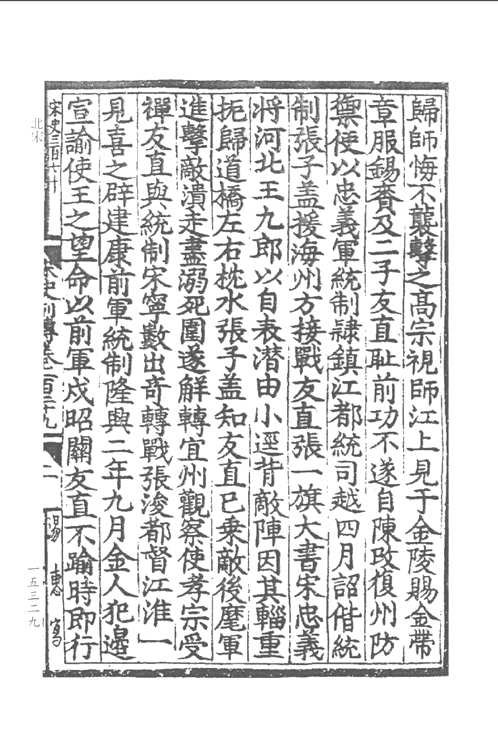 歸師悔不襲擊之高宗視師江上見于金陵賜金帶
章服錫賚及二子友直恥前功不遂自陳改復州防
禦使以忠義軍統制隷鎮江都統司越四月詔偕統
制張子盖援海州方接戰友直張一旗大書宋忠義
將河北王九郎以自表潛由小逕背敵陣因其輜重
扼歸道橋左右扰水張子盖知友直已乗敵後麾軍
進擊敵潰走盡溺死圍遂解轉宜州觀察使孝宗受
禪友直與統制宋寧數出奇轉戰張浚都督江淮一
見喜之辟建康前軍統制隆興二年九月金人犯邊
宣諭使王之望命以前軍戍昭關友直不踰時即行
宋史三百七十
北宋
宋史列傳卷一百二十九
一五三二九